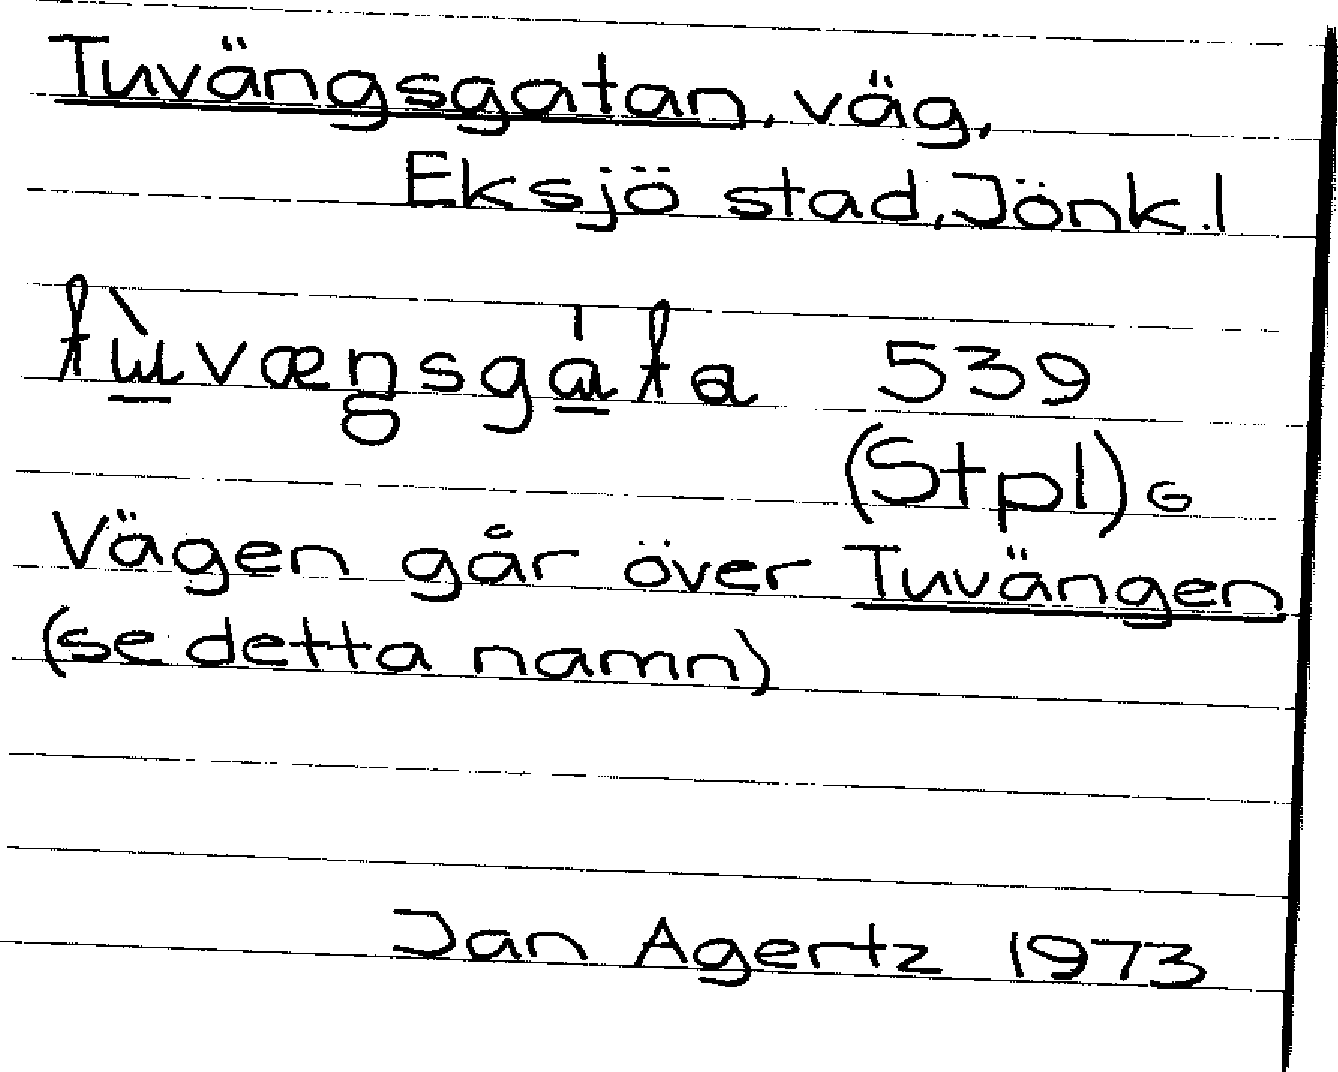 Tuvängsgatan, väg,
Eksjö stad, Jönk.l
tɯ̀væŋsgɑ̍ta 539
(Stpl)G
Vägen går över Tuvängen
(se detta namn)
Jan Agertz 1973